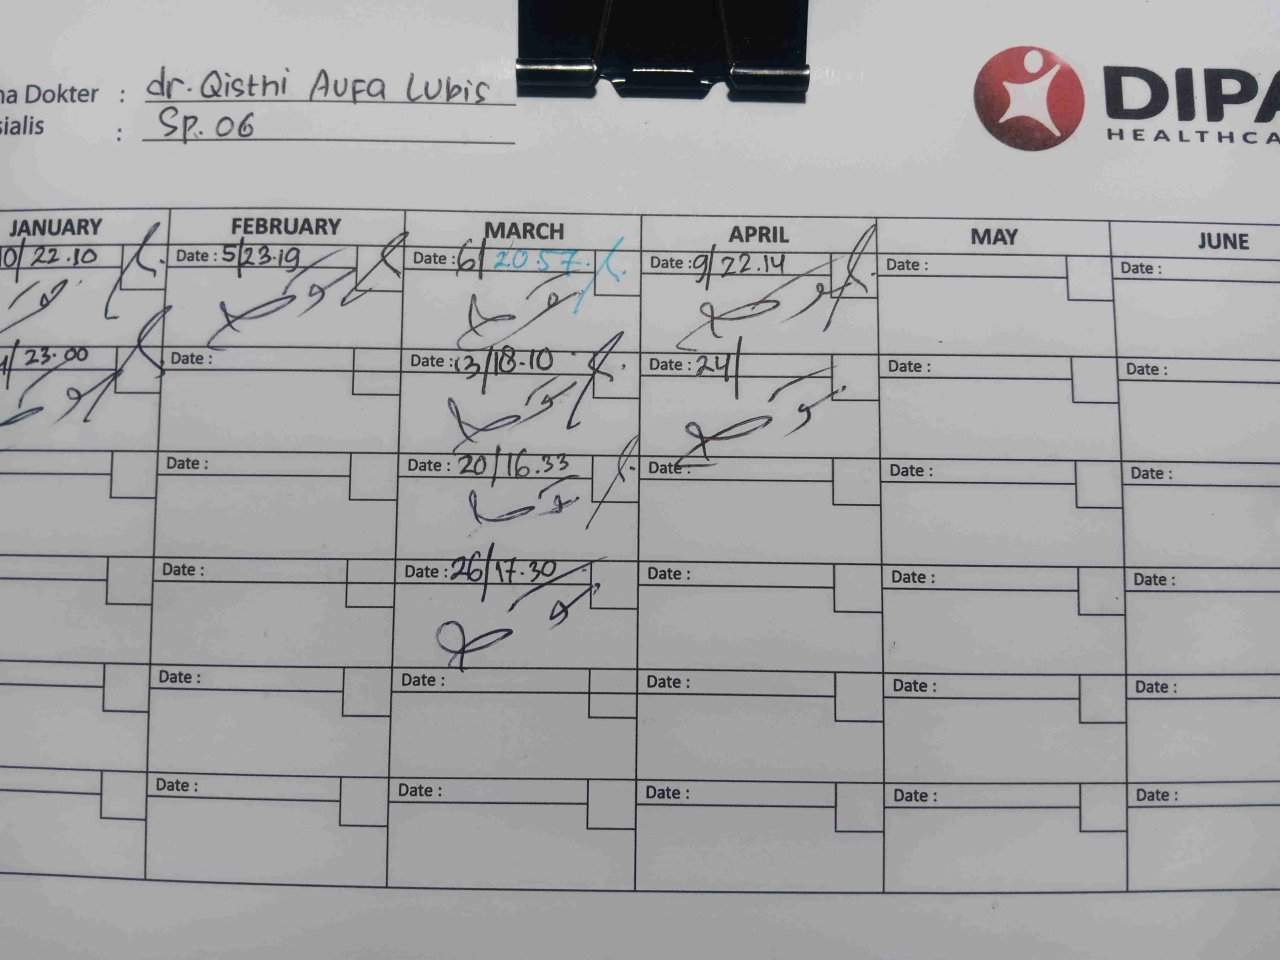 na Dokter : dr. Qisthi Aufa Lubis
sialis : Sp. OG
DIPA
HEALTHCA
JANUARY FEBRUARY MARCH APRIL MAY JUNE
0/22.10 Date : 5/23.19 Date : 6/20.57 Date : 9/22.14 Date : Date :
/23.00 Date : Date : 13/18.10 Date : 24/ Date : Date :
Date : Date : 20/16.33 Date : Date : Date :
Date : Date : 26/17.30 Date : Date : Date :
Date : Date : Date : Date : Date :
Date : Date : Date : Date : Date :